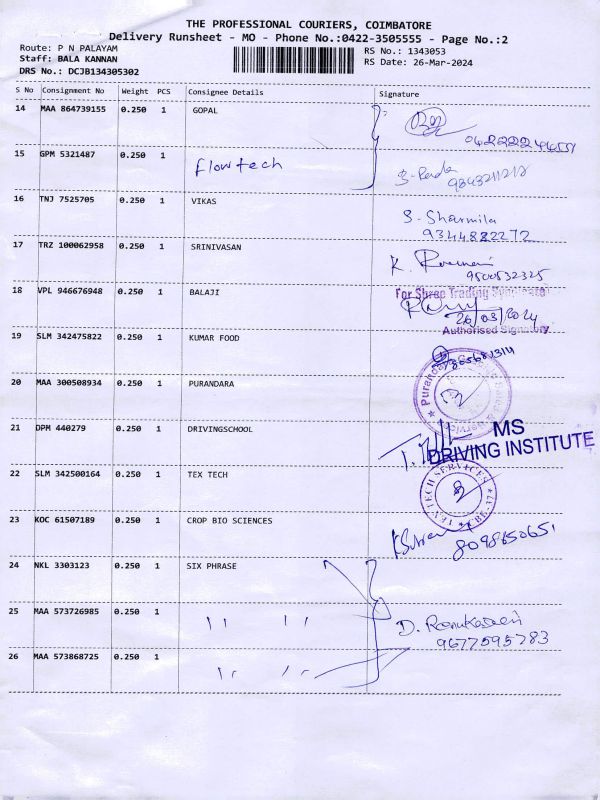 THE PROFESSIONAL COURIERS, COIMBATORE
Delivery Runsheet - MO - Phone No.:0422-3505555 - Page No.:2
Route: P N PALAYAM
RS No.: 1343053
Staff: BALA KANNAN
RS Date: 26-Mar-2024
DRS No.: DCJB134305302
S No Consignment No Weight PCS Consignee Details Signature
14 MAA 864739155 0.250 1 GOPAL
15 GPM 5321487 0.250 1 Flowtech
9843211212
16 TNJ 7525705 0.250 1 VIKAS
S. Sharmila
9344882272
17 TRZ 100062958 0.250 1 SRINIVASAN
K.
9500532325
18 VPL 946676948 0.250 1 BALAJI
For Shree Trading Syndicate
26/03/2024
Authorised Signatory
19 SLM 342475822 0.250 1 KUMAR FOOD
20 MAA 300508934 0.250 1 PURANDARA
21 DPM 440279 0.250 1 DRIVINGSCHOOL
MS
DRIVING INSTITUTE
22 SLM 342500164 0.250 1 TEX TECH
TEXTECH SERVICES
CBE-37
23 KOC 61507189 0.250 1 CROP BIO SCIENCES
8098650651
24 NKL 3303123 0.250 1 SIX PHRASE
25 MAA 573726985 0.250 1 " "
D. Ranukadevi
9677595783
26 MAA 573868725 0.250 1 " "